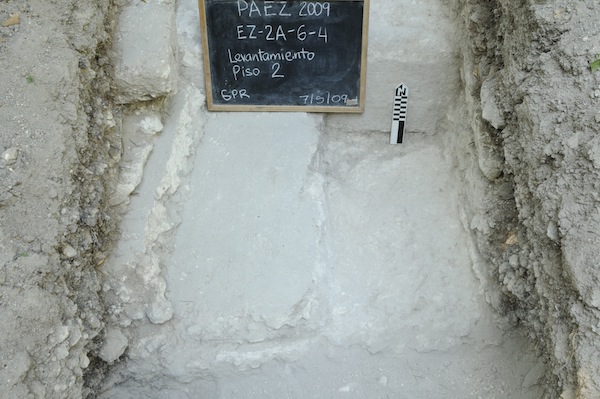 PAEZ 2009
EZ-2A-6-4
Levantamiento
Piso 2
GPR 7/5/09